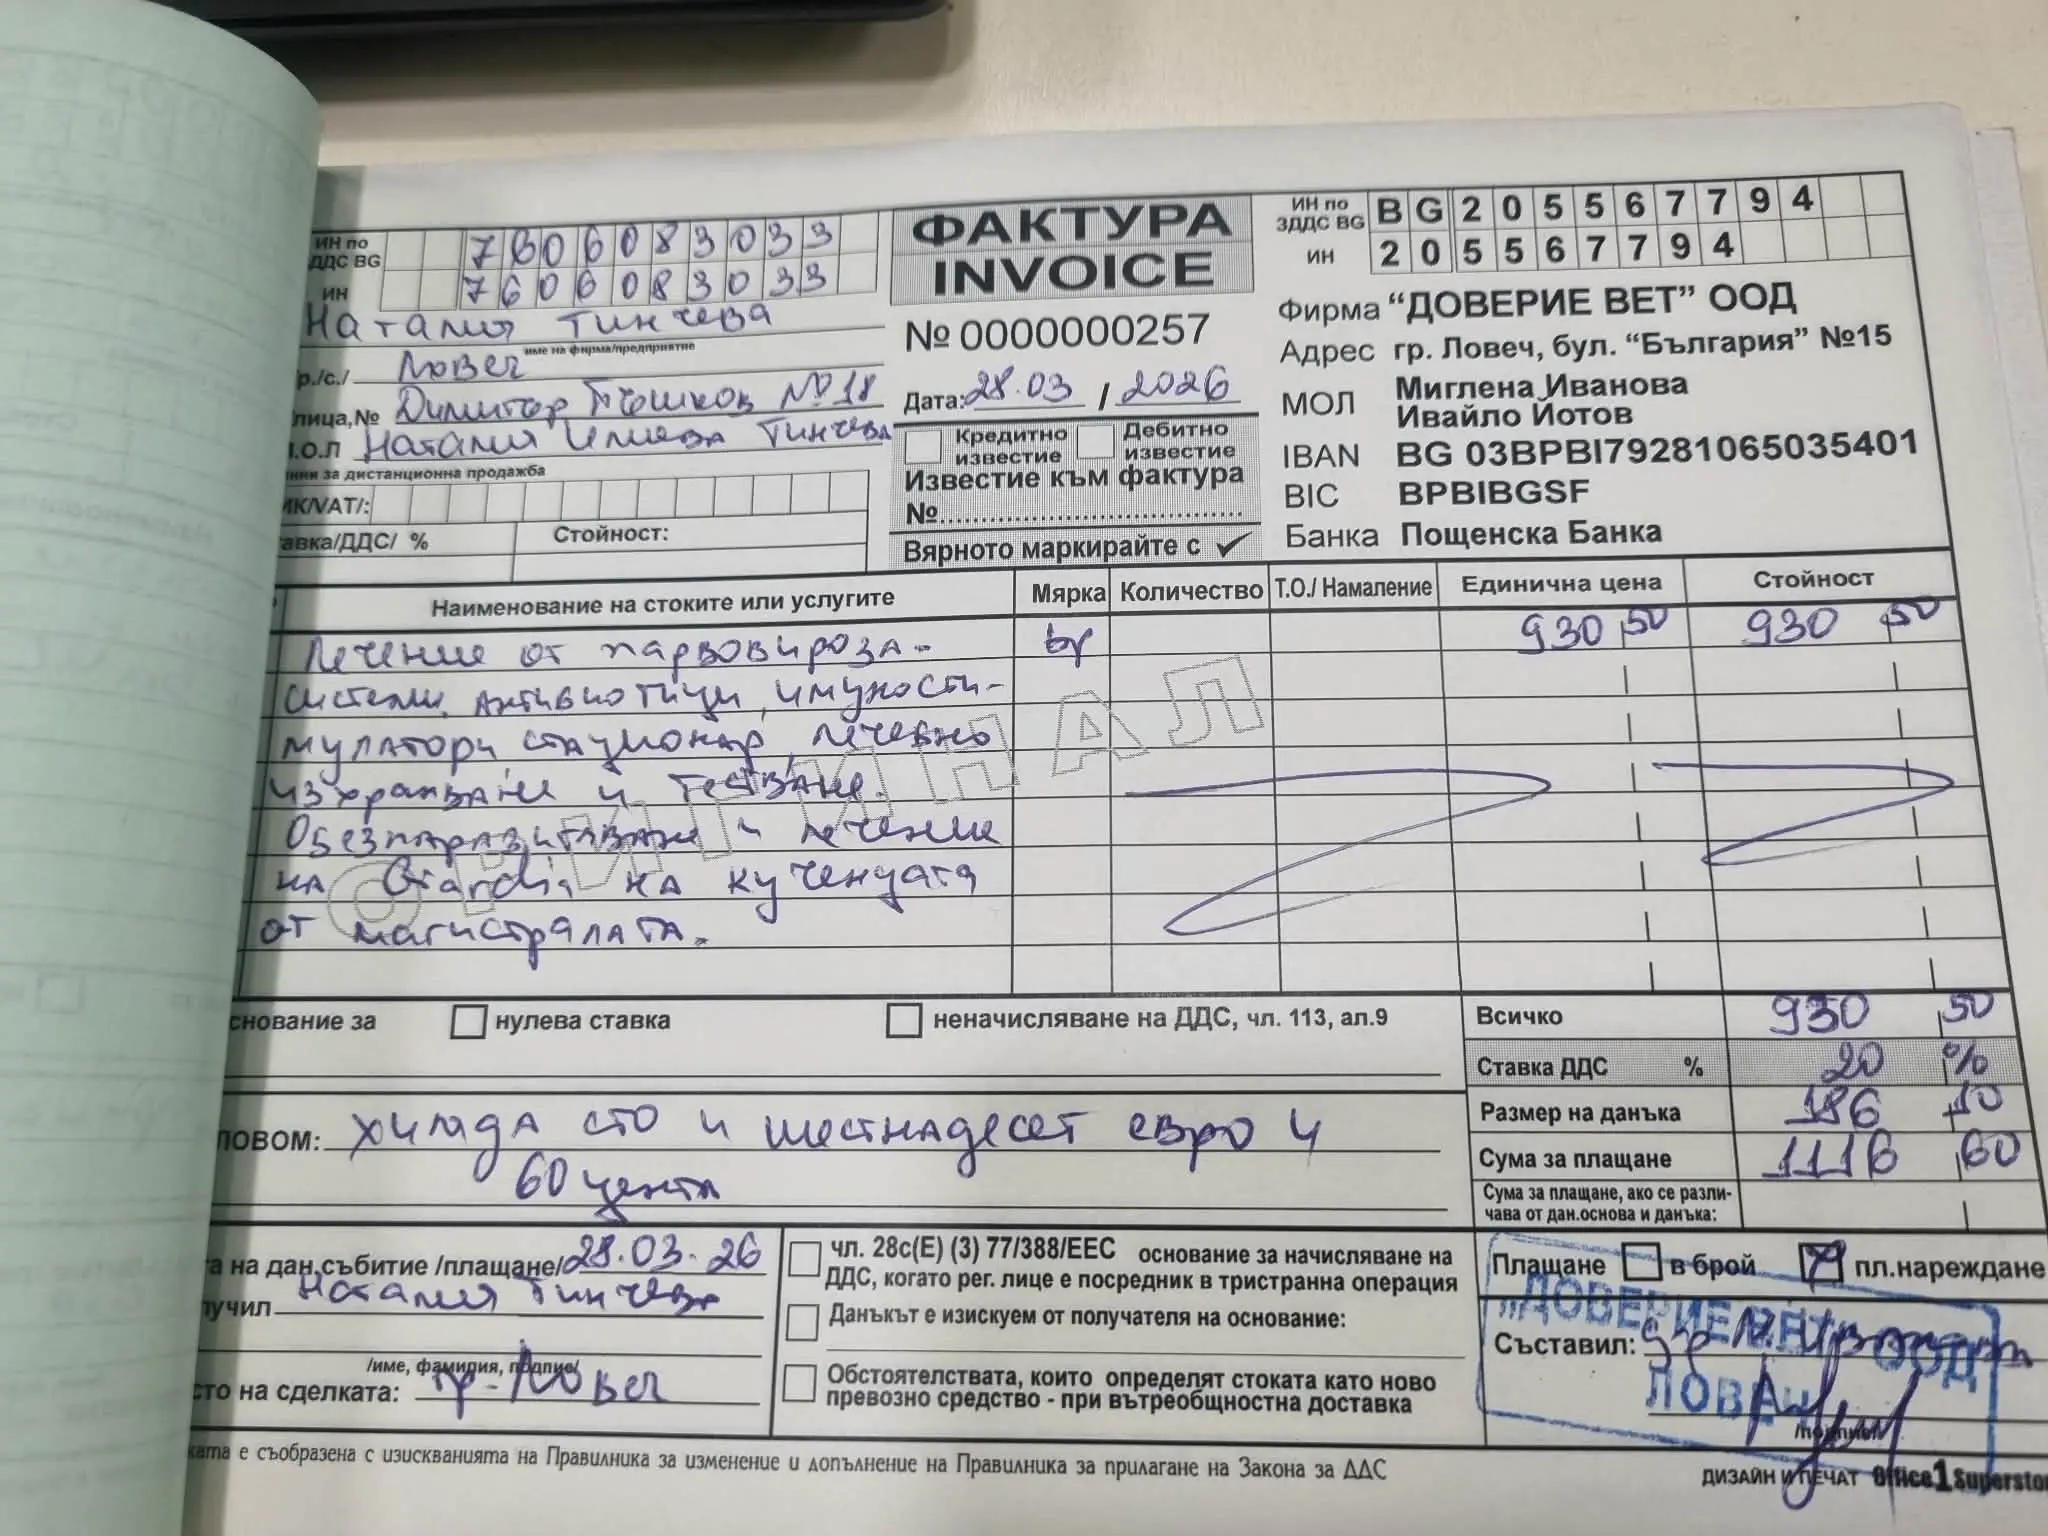 ИН по
ДДС BG 7606083033
ИН 7606083033
Наталия Тинчева
име на фирма/предприятие
р./с./ Ловеч
лица,№ Димитър Пъшков №18
.О.Л Наталия Илиева Тинчева
нни за дистанционна продажба
ИК/VAT/:
авка/ДДС/ %
Стойност:
ФАКТУРА
INVOICE
№ 0000000257
Дата: 28.03 / 2026
Кредитно известие
Дебитно известие
Известие към фактура
№
Вярното маркирайте с ✓
ИН по
ЗДДС BG BG205567794
ИН 205567794
Фирма "ДОВЕРИЕ ВЕТ" ООД
Адрес гр. Ловеч, бул. "България" №15
МОЛ Миглена Иванова
Ивайло Йотов
IBAN BG 03BPBI79281065035401
BIC BPBIBGSF
Банка Пощенска Банка
Наименование на стоките или услугите Мярка Количество Т.О./ Намаление Единична цена Стойност
Лечение от парвовироза- бр 930,50 930,50
системи, антибиотици, имуности-
мулатори, стационар, лечебно
изхранване и тестване.
Обезпаразитяване и лечение
на Giardia на кученцата
от магистралата.
ОРИГИНАЛ
снование за
нулева ставка
неначисляване на ДДС, чл. 113, ал.9
Всичко 930,50
Ставка ДДС % 20 %
Размер на данъка 186,10
Сума за плащане 1116,60
Сума за плащане, ако се разли-
чава от дан.основа и данъка:
ЛОВОМ: хиляда сто и шестнадесет евро и
60 цента
а на дан.събитие /плащане/ 28.03.26
лучил Наталия Тинчева
/име, фамилия, подпис/
сто на сделката: гр. Ловеч
чл. 28с(Е) (3) 77/388/ЕЕС основание за начисляване на
ДДС, когато рег. лице е посредник в тристранна операция
Данъкът е изискуем от получателя на основание:
Обстоятелствата, които определят стоката като ново
превозно средство - при вътреобщностна доставка
Плащане в брой пл.нареждане
Съставил: д-р М. Иванова
/подпис/
"ДОВЕРИЕ ВЕТ" ООД
ЛОВЕЧ
ката е съобразена с изискванията на Правилника за изменение и допълнение на Правилника за прилагане на Закона за ДДС
ДИЗАЙН И ПЕЧАТ Office1Supersto